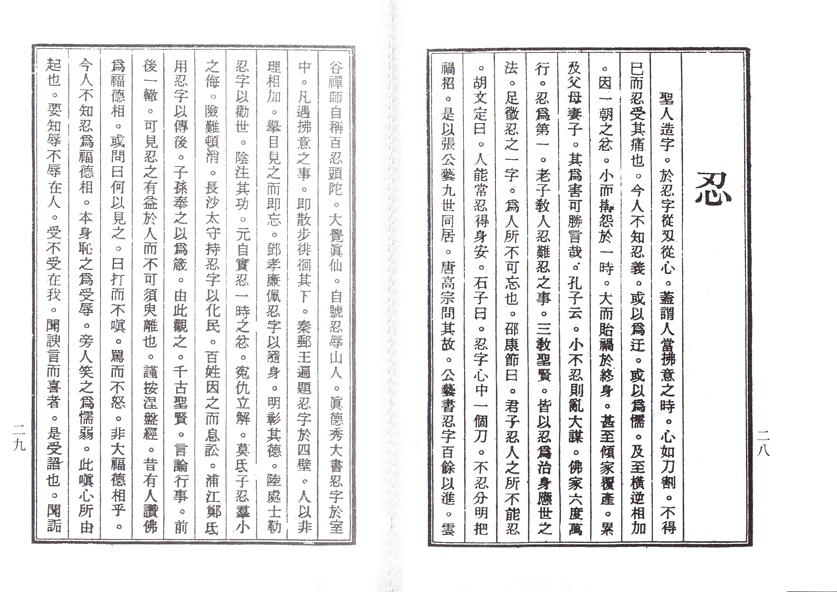 忍
聖人造字。於忍字從刄從心。蓋謂人當拂意之時。心如刀割。不得
已而忍受其痛也。今人不知忍義。或以爲迂。或以爲懦。及至橫逆相加
。因一朝之忿。小而搆怨於一時。大而貽禍於終身。甚至傾家覆產。累
及父母妻子。其爲害可勝言哉。孔子云。小不忍則亂大謀。佛家六度萬
行。忍爲第一。老子敎人忍難忍之事。三敎聖賢。皆以忍爲治身應世之
法。足徵忍之一字。爲人所不可忘也。邵康節曰。君子忍人之所不能忍
。胡文定曰。人能常忍得身安。石子曰。忍字心中一個刀。不忍分明把
禍招。是以張公藝九世同居。唐高宗問其故。公藝書忍字百餘以進。雲
二八
谷禪師自稱百忍頭陀。大覺眞仙。自號忍辱山人。眞德秀大書忍字於室
中。凡遇拂意之事。即散步徘徊其下。秦郵王遍題忍字於四壁。人以非
理相加。舉目見之而即忘。鄧孝廉佩忍字以隨身。明彰其德。陸處士勒
忍字以勸世。陰注其功。元自實忍一時之忿。寃仇立解。莫氏子忍羣小
之侮。險難頓消。長沙太守持忍字以化民。百姓因之而息訟。浦江鄭氏
用忍字以傳後。子孫奉之以爲箴。由此觀之。千古聖賢。言論行事。前
後一轍。可見忍之有益於人而不可須臾離也。謹按涅盤經。昔有人讚佛
爲福德相。或問曰何以見之。曰打而不嗔。罵而不怒。非大福德相乎。
今人不知忍爲福德相。本身恥之爲受辱。旁人笑之爲懦弱。此嗔心所由
起也。要知辱不辱在人。受不受在我。聞諛言而喜者。是受諂也。聞詬
二九